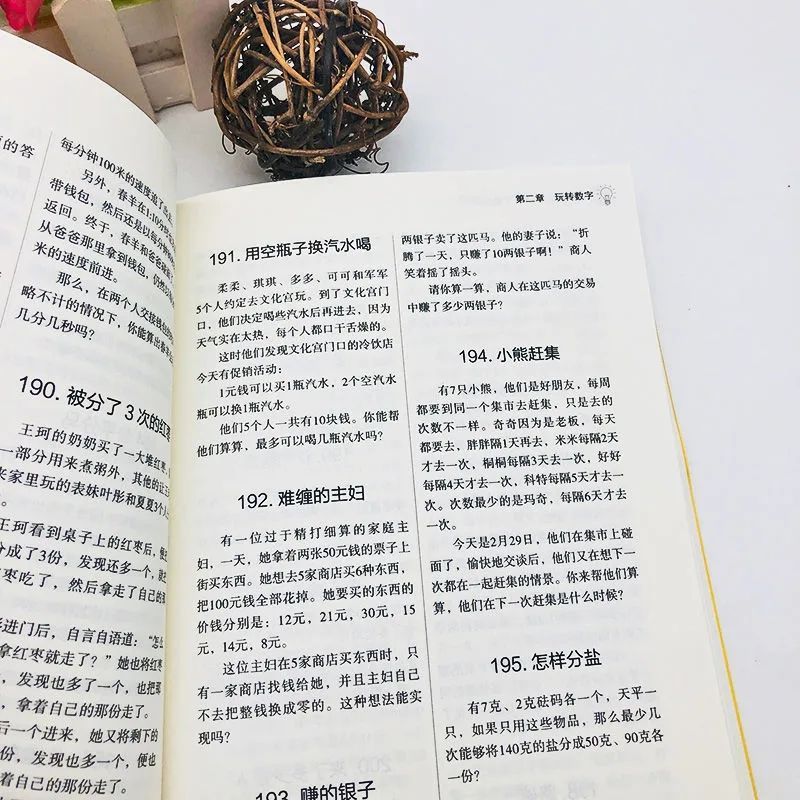 的答
每分钟100米的速度
另外，春羊在1:10分
带钱包，然后还是以
返回。终于，春羊和爸爸
从爸爸那里拿到钱包，仍然
米的速度前进。
那么，在两个人交接钱包的
略不计的情况下，你能算出春羊
几分几秒吗？
190. 被分了3次的红枣
王珂的奶奶买了一大堆红枣，
一部分用来煮粥外，其他的正
来家里玩的表妹叶彤和夏夏3个人
王珂看到桌子上的红枣后，
分成了3份，发现还多一个，
枣吃了，然后拿走了自己的
进门后，自言自语道：“怎么
拿红枣就走了？”她也将红枣
，发现也多了一个，也把那
，拿着自己的那份走了。
后一个进来，她又将剩下的
，发现也多了一个，便也
着自己的那份走了。
第二章 玩转数字
191. 用空瓶子换汽水喝
柔柔、琪琪、多多、可可和军军
5个人约定去文化宫玩。到了文化宫门
口，他们决定喝些汽水后再进去，因为
天气实在太热，每个人都口干舌燥的。
这时他们发现文化宫门口的冷饮店
今天有促销活动：
1元钱可以买1瓶汽水，2个空汽水
瓶可以换1瓶汽水。
他们5个人一共有10块钱。你能帮
他们算算，最多可以喝几瓶汽水吗？
192. 难缠的主妇
有一位过于精打细算的家庭主
妇，一天，她拿着两张50元钱的票子上
街买东西。她想去5家商店买6种东西，
把100元钱全部花掉。她要买的东西的
价钱分别是：12元，21元，30元，15
元，14元，8元。
这位主妇在5家商店买东西时，只
有一家商店找钱给她，并且主妇自己
不去把整钱换成零的。这种想法能实
现吗？
193. 赚的银子
两银子卖了这匹马。他的妻子说：“折
腾了一天，只赚了10两银子啊！”商人
笑着摇了摇头。
请你算一算，商人在这匹马的交易
中赚了多少两银子？
194. 小熊赶集
有7只小熊，他们是好朋友，每周
都要到同一个集市去赶集，只是去的
次数不一样。奇奇因为是老板，每天
都要去，胖胖隔1天再去，米米每隔2天
才去一次，桐桐每隔3天去一次，好好
每隔4天才去一次，科特每隔5天才去
一次。次数最少的是玛奇，每隔6天才去
一次。
今天是2月29日，他们在集市上碰
面了，愉快地交谈后，他们又在想下一
次都在一起赶集的情景。你来帮他们算
算，他们在下一次赶集是什么时候？
195. 怎样分盐
有7克、2克砝码各一个，天平一
只，如果只用这些物品，那么最少几
次能够将140克的盐分成50克、90克各
一份？